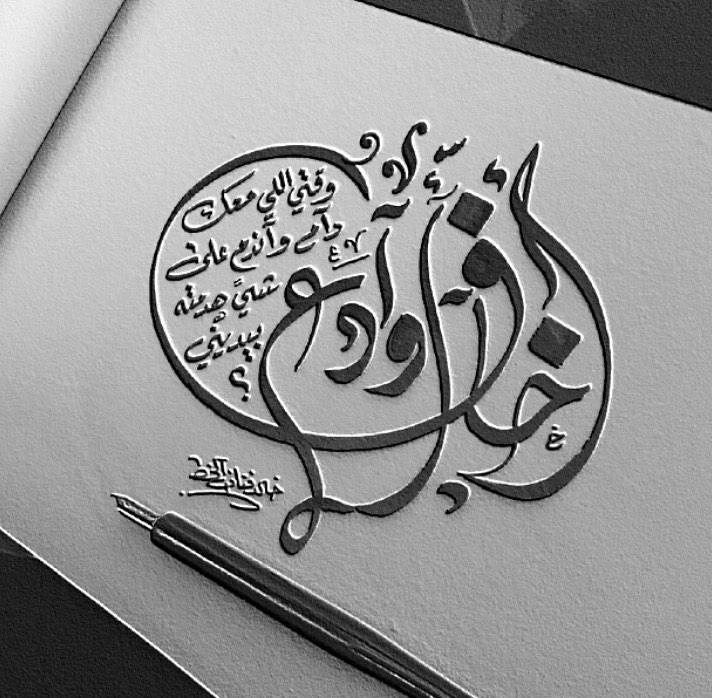 أخاف أوادع
وقتي اللي معك
وأندم على
شيٍّ هدمته
بيديني
؟
خالد فنان الخط